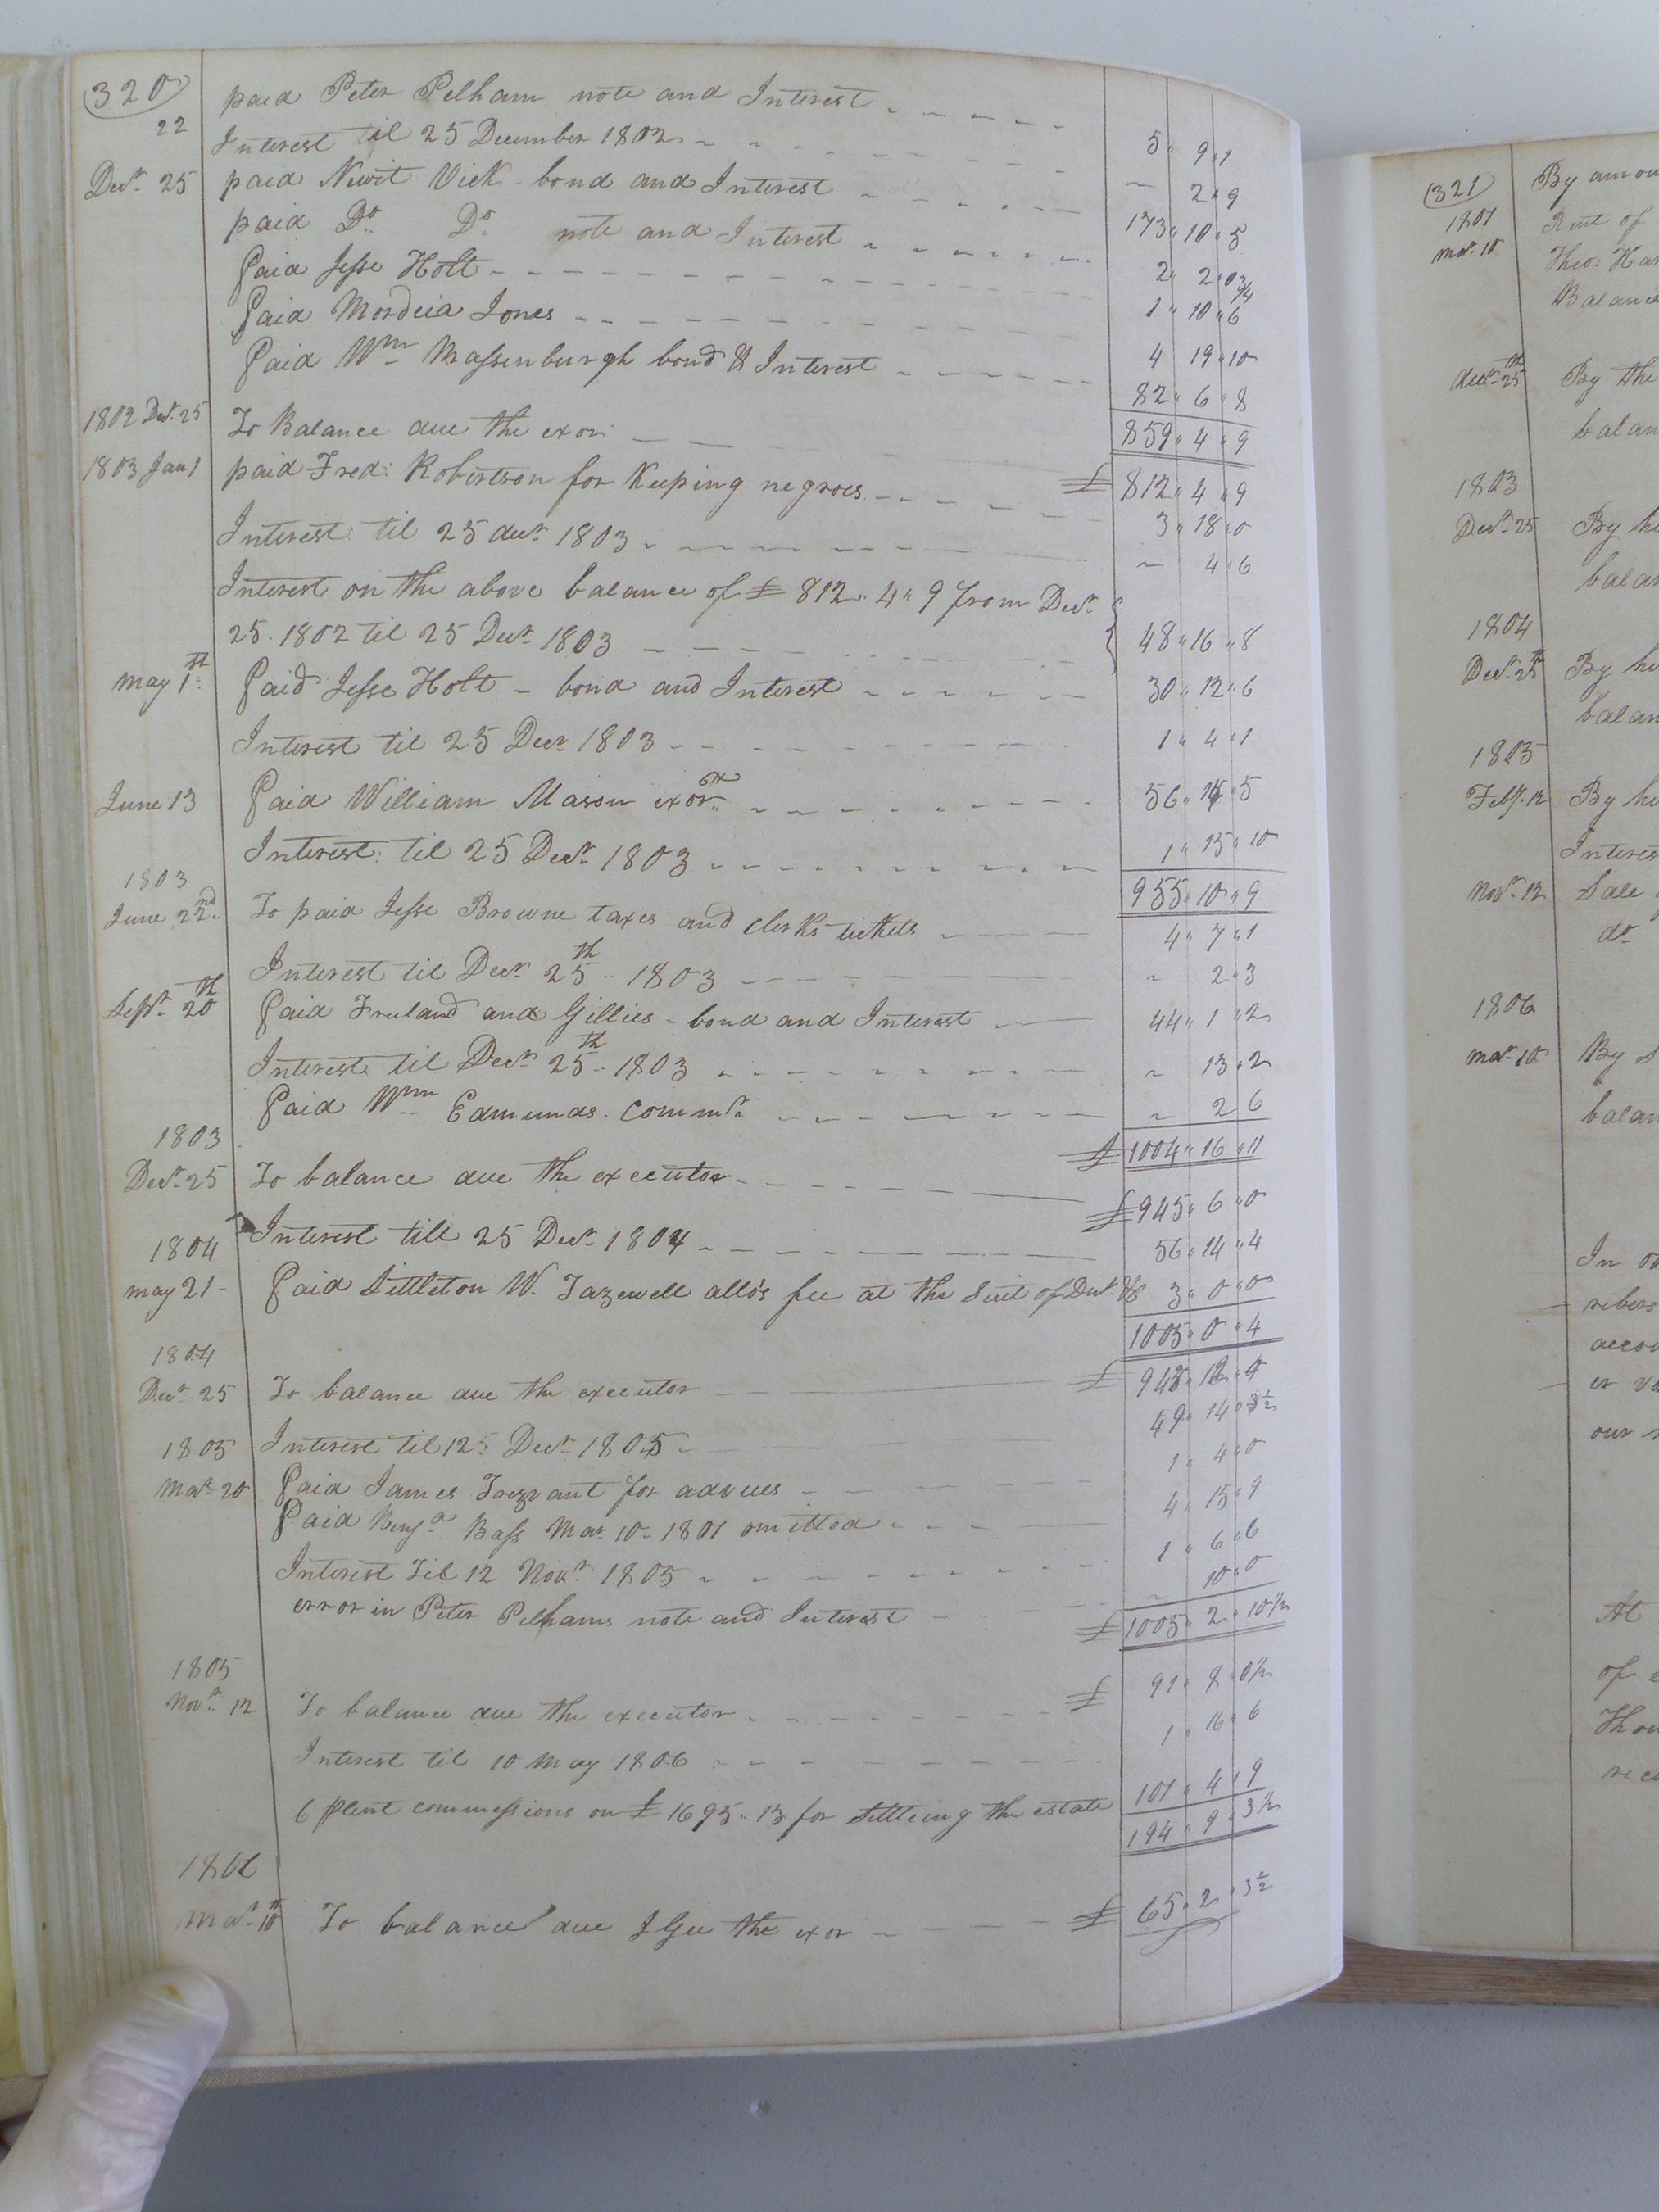 320
22 paid Peter Pelham note and Interest 5 " 9 " 1
Interest til 25 December 1802 ~ 2 " 9
Decr. 25 paid Newit Vick - bond and Interest 173 " 10 " 5
paid Do. Do. note and Interest 2 " 2 " 0 3/4
Paid Jesse Holt 1 " 10 " 6
Paid Mordcia Jones 4 19 " 10
Paid Wm Massenburgh bond & Interest 82 " 6 " 8
859 " 4 " 9
1802 Decr. 25 To Balance due the exor £ 812 " 4 " 9
1803 Jan 1 paid Fred: Robertson for Keeping negroes 3 " 18 " 0
Interest til 25 decr. 1803 ~ 4 " 6
Interest on the above balance of £ 812 " 4 " 9 from Decr.
25. 1802 til 25 Decr. 1803 48 " 16 " 8
may 1st. Paid Jesse Holt - bond and Interest 30 " 12 " 6
Interest til 25 Decr 1803 1 " 4 " 1
June 13 Paid William Mason exor. 56 " " 5
Interest til 25 Decr. 1803 1 " 15 " 10
955 " 10 " 9
1803
June 22nd. To paid Jesse Browne taxes and clerks tickets 4 " 7 " 1
Interest til Decr 25th 1803 ~ 2 " 3
Sepr. 20th Paid Freeland and Gillies - bond and Interest 44 " 1 " 2
Interest til Decr 25th 1803 ~ 13 " 2
Paid Wm Edmunds. Commr. ~ 2 6
£ 1004 " 16 " 11
1803
Decr. 25 To balance due the executor £ 945 " 6 " 0
Interest till 25 Decr. 1804 56 " 14 " 4
1804
may 21 - Paid Littleton W. Tazewell atto's fee at the Suit of 3 " 0 " 0
1005 " 0 " 4
1804
Decr. 25 To balance due the executor £
1805 Interest til 12 Decr. 1805 49 " 14 "
Mar 20 Paid James Trezvant for advices 1 " 4 " 0
Paid Benja. Bass Mar 10 - 1801 omitted 4 " 15 " 9
Interest Til 12 Novr. 1805 1 " 6 " 6
error in Peter Pelhams note and Interest ~ 10 " 0
£ 1005 " 2 " 10 1/2
1805
Novr. 12 To balance due the executor £ 91 " 8 " 0 1/2
Interest til 10 May 1806 1 " 16 " 6
6 Pcent commessions on £ 1695 " 13 for Settleing the estate 101 " 4 " 9
194 " 9 " 3 1/2
1806
Mar. 10th To balance due J Gee the exor £ 65 " 2 " 3 1/2
321
By amou
1801 Rent of
mar. 10 Theo: Har
Balance
decr. 25th By the
balan
1803
Decr. 25 By h
balan
1804
Decr. 25th By h
balan
1805
Feby. 12 By h
Interes
Novr. 12 Sale
do
1806
mar. 10 By S
balan
In
ribers
accou
er va
our
At
of e
Thou